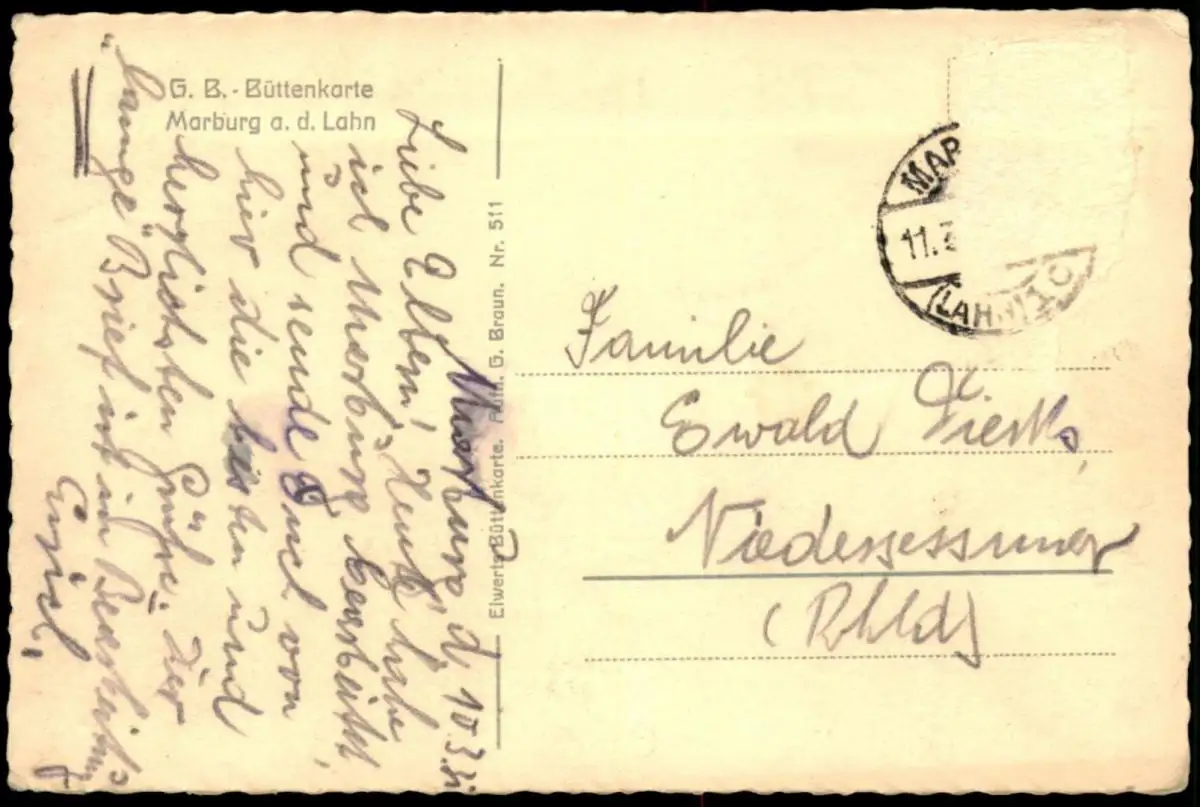 G. B. - Büttenkarte
Marburg a. d. Lahn
Marburg, d. 10.3.
Liebe Eltern! Heute habe
ich Marburg bearbeitet
und sende Euch von
hier die besten und
herzlichsten Grüße. Der
"lange" Brief ist in Bearbeitung
Elwerts Büttenkarte. Aufn. G. Braun. Nr. 511
MAR
11.3
(LAHN) 1 C
Familie
Ewald
Niedersessmar
(Rhld)